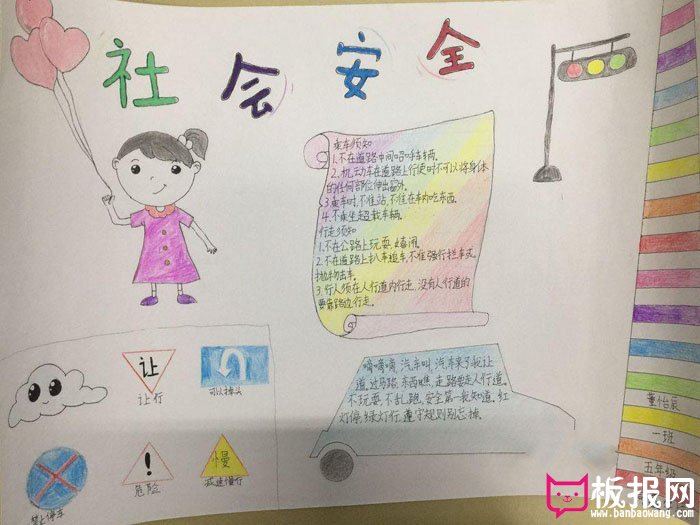 社会安全
乘车须知
1.不在道路中间招呼车辆。
2.机动车在道路上行使时不可以将身体
的任何部位伸出窗外。
3.乘车时,不准站,不准在车内吃东西。
4.不乘坐超载车辆。
行走须知
1.不在公路上玩耍、嬉闹。
2.不在道路上扒车追车,不准强行拦车或
抛物击车。
3.行人须在人行道内行走,没有人行道的
要靠路边行走。
让
让行
可以掉头
禁止停车
!
危险
慢
减速慢行
嘀嘀嘀,汽车叫,汽车来了我让
道。过马路,东西瞧,走路要走人行道。
不玩耍,不乱跑,安全第一我知道。红
灯停,绿灯行,遵守规则别忘掉。
董怡辰
一班
五年级
板报网
www.banbaowang.com